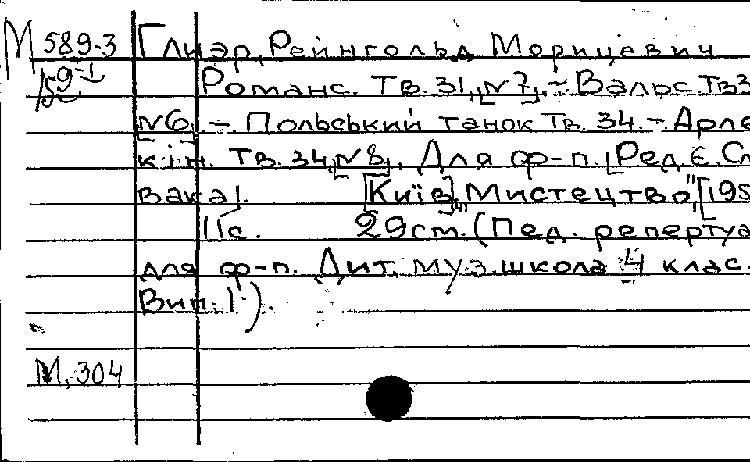 М 589-3 Глиэр, Рейнгольд Морицевич
Романс. Тв. 31, №7. – Вальс Тв3
№6. – Польський танок Тв. 34. – Арле
кін. Тв. 34, №8. Для ф-п. [Ред. Є. Сл
вака].  [Київ], "Мистецтво", [195
11с.  29см. (Пед. репертуа
для ф-п. Дит. муз. школа 4 клас.
Вип. 1).
М. 304